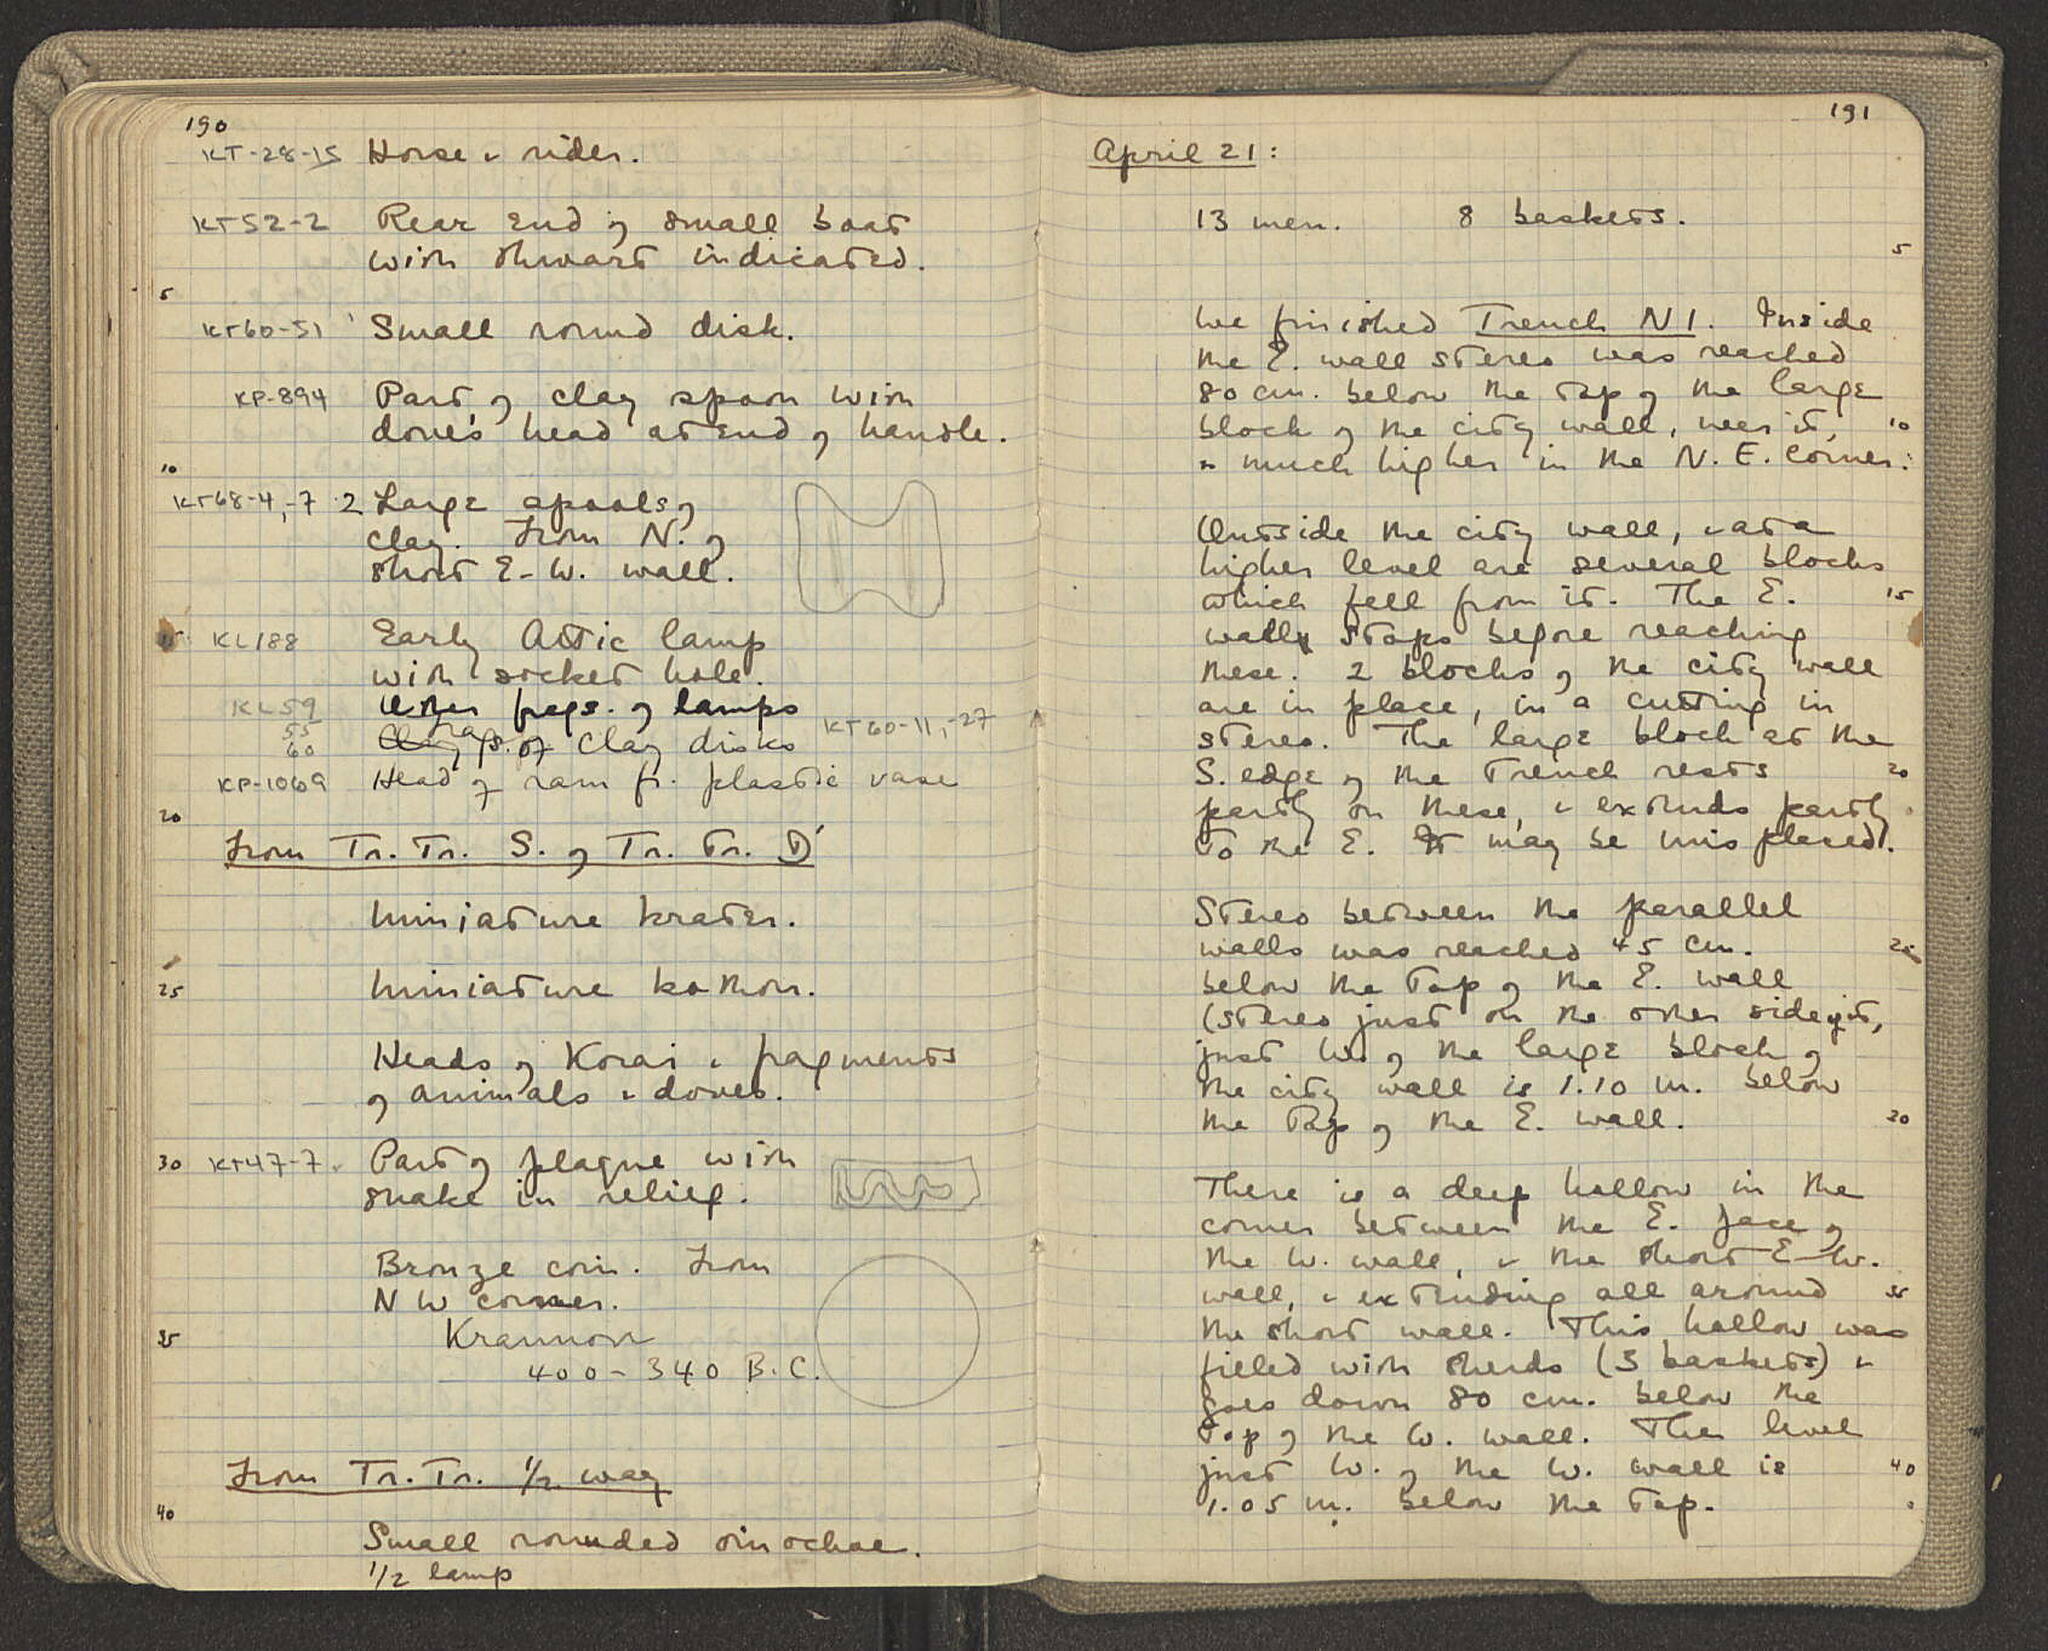 190
KT-28-15 Horse & rider.
KT52-2 Rear End of small boat
with thwart indicated.
5
KT60-51 Small round disk.
KP-894 Part of clay spoon with
dove's head at End of handle.
10
KT68-4,-7 2 Large spools of
clay. From N. of
short E-W. wall.
15 KL188 Early Attic lamp
with socket hole.
KL59 Other frags. of lamps
55
60 Clay frags. of clay disks KT60-11,-27
KP-1069 Head of ram fr. plastic vase
20
From Tr. Tr. S. of Tr. Tr. D'
Miniature krater.
25 Miniature kothon.
Heads of Korai & fragments
of animals & doves.
30 KT47-7. Part of plaque with
snake in relief.
Bronze coin. From
NW corner.
35 Krannon
400-340 B.C.
From Tr. Tr. 1/2 way
40
Small rounded oinochoe.
1/2 lamp
191
April 21:
13 men. 8 baskets.
5
We finished Trench N1. Inside
the E. wall stereo was reached
80 cm. below the top of the large
block of the city wall, near it, 10
& much higher in the N.E. corner.
Outside the city wall, & at a
higher level are several blocks
which fell from it. The E. 15
wall stops before reaching
these. 2 blocks of the city wall
are in place, in a cutting in
stereo. The large block at the
S. edge of the trench rests 20
partly on these, & extends partly
to the E. It may be misplaced.
Stereo between the parallel
walls was reached 45 cm. 25
below the top of the E. wall
(stereo just on the other side of it,
just W. of the large block of
the city wall is 1.10 m. below
the top of the E. wall. 30
There is a deep hollow in the
corner between the E. face of
the W. wall, & the short E-W.
wall, & extending all around 35
the short wall. This hollow was
filled with sherds (3 baskets) &
goes down 80 cm. below the
top of the W. wall. The level
just W. of the W. wall is 40
1.05 m. below the top.